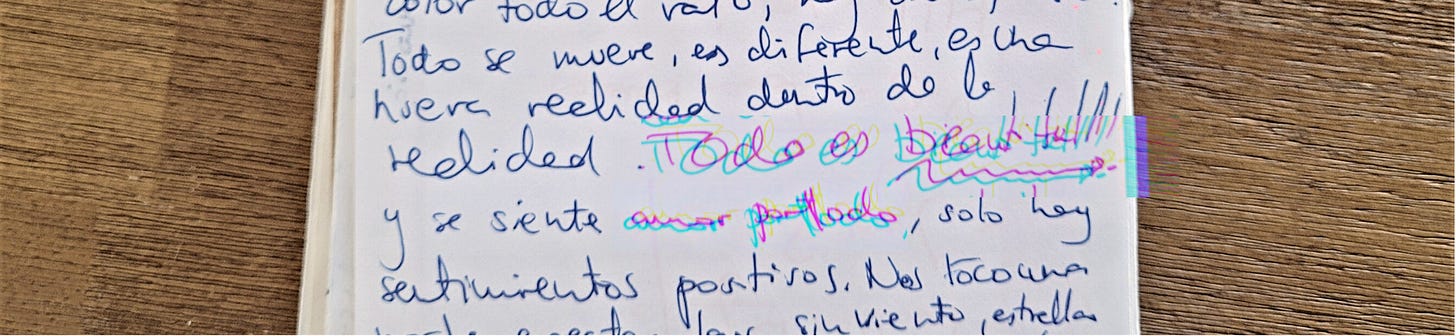 color todo el rato, hay
Todo se mueve, es diferente, es una
nueva realidad dentro de la
realidad. Todo es beautiful!!!!
y se siente amor por todo, solo hay
sentimientos positivos. Nos toco una
sin viento, estrellas